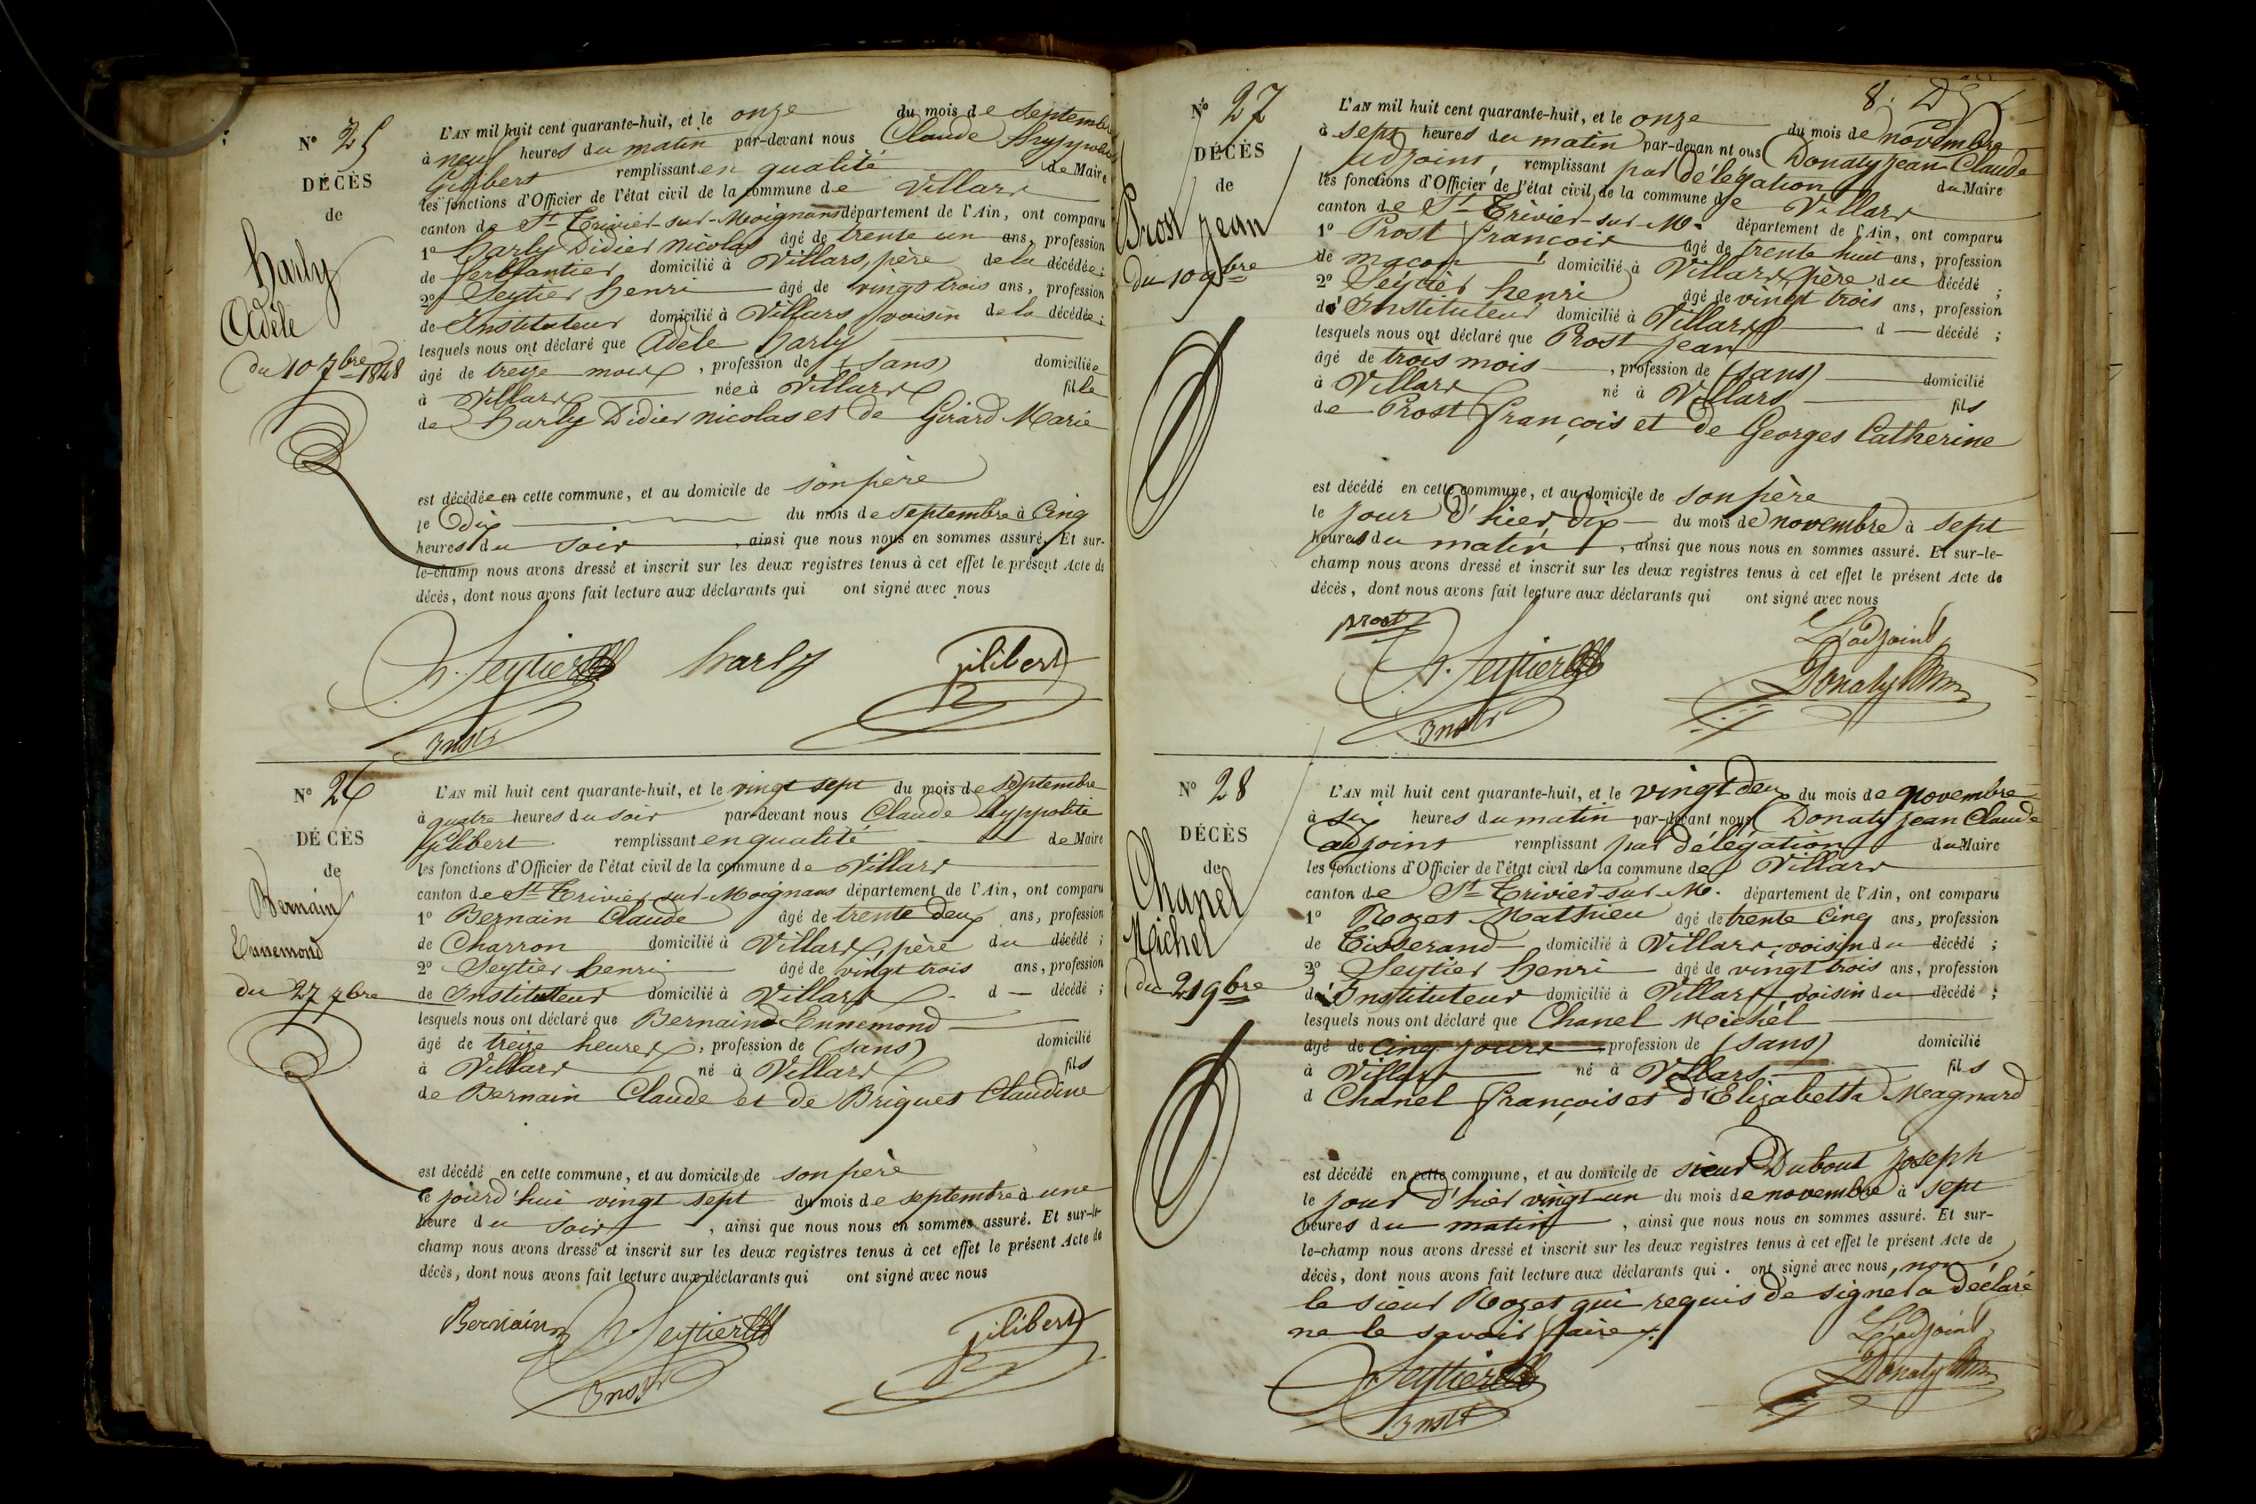 N° 25
DÉCÈS
de
harly
Adèle
du 10 7bre 1848
L'AN mil huit cent quarante-huit, et le onze du mois de septembre
à neuf heures du matin par-devant nous Claude hyppolite
Gilibert remplissant en qualité de Maire
les fonctions d'Officier de l'état civil de la commune de Villars
canton de St Trivier-sur-Moignans département de l'Ain, ont comparu
1° harly Didier nicolas âgé de trente un ans, profession
de ferblantier domicilié à Villars, père de la décédée;
2° Seytier henri âgé de vingt trois ans, profession
de Instituteur domicilié à Villars voisin de la décédée;
lesquels nous ont déclaré que Adèle harly
âgé de treize mois, profession de (sans) domiciliée
à Villars née à Villars fille
de harly Didier nicolas et de Girard Marie
est décédée en cette commune, et au domicile de son père
le Dix du mois de septembre à Cinq
heures du soir, ainsi que nous nous en sommes assuré. Et sur-
le-champ nous avons dressé et inscrit sur les deux registres tenus à cet effet le présent Acte de
décès, dont nous avons fait lecture aux déclarants qui ont signé avec nous
h. Seytier harly gilibert
Instr
N° 26
DÉCÈS
de
Bernain
Ennemond
du 27 7bre
L'AN mil huit cent quarante-huit, et le vingt sept du mois de septembre
à quatre heures du soir par-devant nous Claude hyppolite
Gilibert remplissant en qualité de Maire
les fonctions d'Officier de l'état civil de la commune de Villars
canton de St Trivier-sur-Moignans département de l'Ain, ont comparu
1° Bernain Claude âgé de trente deux ans, profession
de Charron domicilié à Villars, père du décédé;
2° Seytier henri âgé de vingt trois ans, profession
de Instituteur domicilié à Villars d décédé;
lesquels nous ont déclaré que Bernain Ennemond
âgé de treize heures, profession de (sans) domicilié
à Villars né à Villars fils
de Bernain Claude et de Briquet Claudine
est décédé en cette commune, et au domicile de son père
le jourd'hui vingt sept du mois de septembre à une
heure du soir, ainsi que nous nous en sommes assuré. Et sur-le-
champ nous avons dressé et inscrit sur les deux registres tenus à cet effet le présent Acte de
décès, dont nous avons fait lecture aux déclarants qui ont signé avec nous
Bernain h. Seytier gilibert
Instr
8.
N° 27
DÉCÈS
de
Prost jean
du 10 9bre
L'AN mil huit cent quarante-huit, et le onze du mois de novembre
à sept heures du matin par-devan nt ous Donaty jean Claude
adjoint, remplissant par délégation du Maire
les fonctions d'Officier de l'état civil de la commune de Villars
canton de St Trivier-sur-M. département de l'Ain, ont comparu
1° Prost françois âgé de trente huit ans, profession
de maçon domicilié à Villars père du décédé;
2° Seytier henri âgé de vingt trois ans, profession
d'Instituteur domicilié à Villars d décédé;
lesquels nous ont déclaré que Prost jean
âgé de trois mois, profession de (sans) domicilié
à Villars né à Villars fils
de Prost françois et de Georges Catherine
est décédé en cette commune, et au domicile de son père
le jour d'hier, dix du mois de novembre à sept
heures du matin, ainsi que nous nous en sommes assuré. Et sur-le-
champ nous avons dressé et inscrit sur les deux registres tenus à cet effet le présent Acte de
décès, dont nous avons fait lecture aux déclarants qui ont signé avec nous
prost L'adjoint
h. Seytier Donaty
Instr
N° 28
DÉCÈS
de
Chanel
Michel
du 21 9bre
L'AN mil huit cent quarante-huit, et le vingt deux du mois de novembre
à six heures du matin par-devant nous Donaty jean Claude
adjoint remplissant par délégation du Maire
les fonctions d'Officier de l'état civil de la commune de Villars
canton de St Trivier-sur-M. département de l'Ain, ont comparu
1° Rozet Mathieu âgé de trente Cinq ans, profession
de Tisserand domicilié à Villars, voisin du décédé;
2° Seytier henri âgé de vingt trois ans, profession
d'Instituteur domicilié à Villars, voisin du décédé;
lesquels nous ont déclaré que Chanel Michel
âgé de Cinq jours, profession de (sans) domicilié
à Villars né à Villars fils
d Chanel françois et d'Elizabetta Magnard
est décédé en cette commune, et au domicile de sieur Dubout joseph
le jour d'hier vingt un du mois de novembre à sept
heures du matin, ainsi que nous nous en sommes assuré. Et sur-
le-champ nous avons dressé et inscrit sur les deux registres tenus à cet effet le présent Acte de
décès, dont nous avons fait lecture aux déclarants qui. ont signé avec nous, non
le sieur Rozet qui requis de signer a déclaré
ne le savoir faire.
L'adjoint
h. Seytier Donaty
Instr